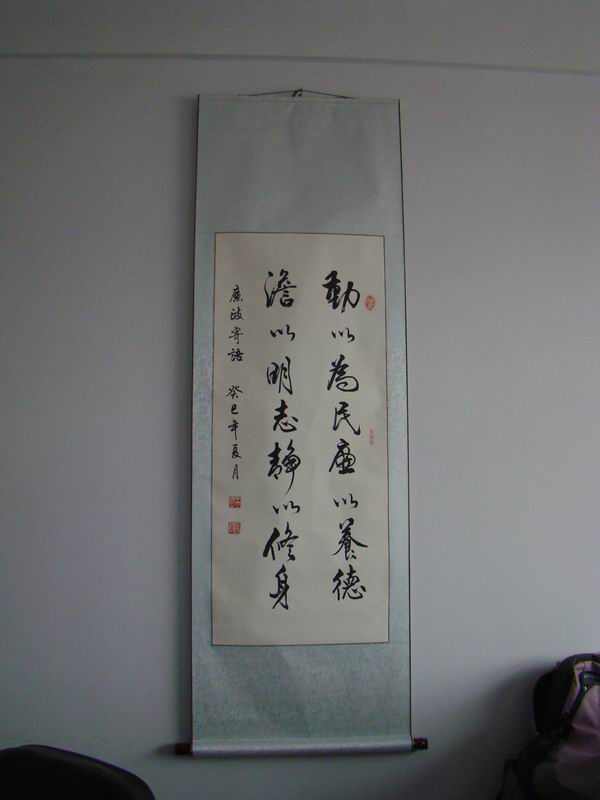 勤以為民廉以養德
澹以明志静以修身
廉政寄語 癸巳年夏月